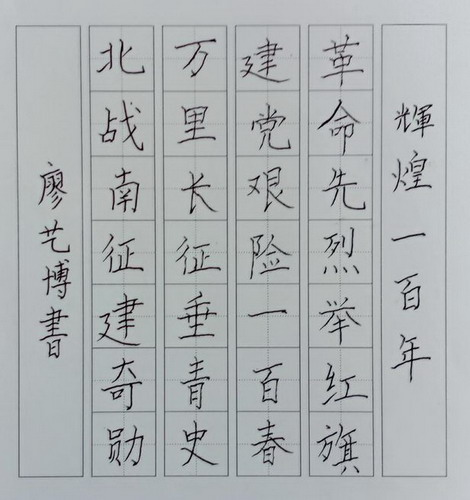 輝煌一百年
革命先烈举红旗
建党艰险一百春
万里长征垂青史
北战南征建奇勋
廖艺博書